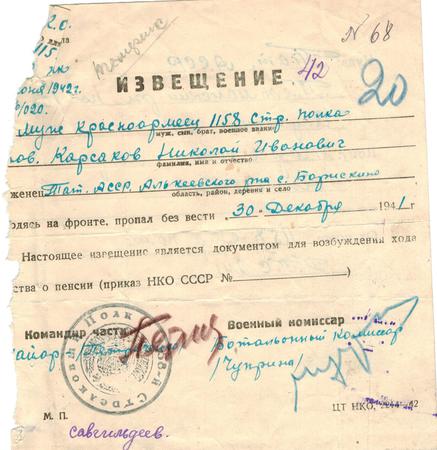 № 68
2.0.
115
42
июня 1942 г.
20
ИЗВЕЩЕНИЕ
/020.
муж Красноармеец 1158 Стр. полка
муж, сын, брат, военное звание
ов. Карсаков Николай Иванович
фамилия, имя и отчество
женец Тат. АССР, Алькеевского р-на с. Борискино
область, район, деревня и село
дясь на фронте, пропал без вести 30 Декабря 1941 г.
Настоящее извещение является документом для возбуждения хода
ства о пенсии (приказ НКО СССР №
Командир части
Военный комиссар
Батальонный комиссар
/Чуприна/
М. П.
ЦТ НКО,
савгильдеев.